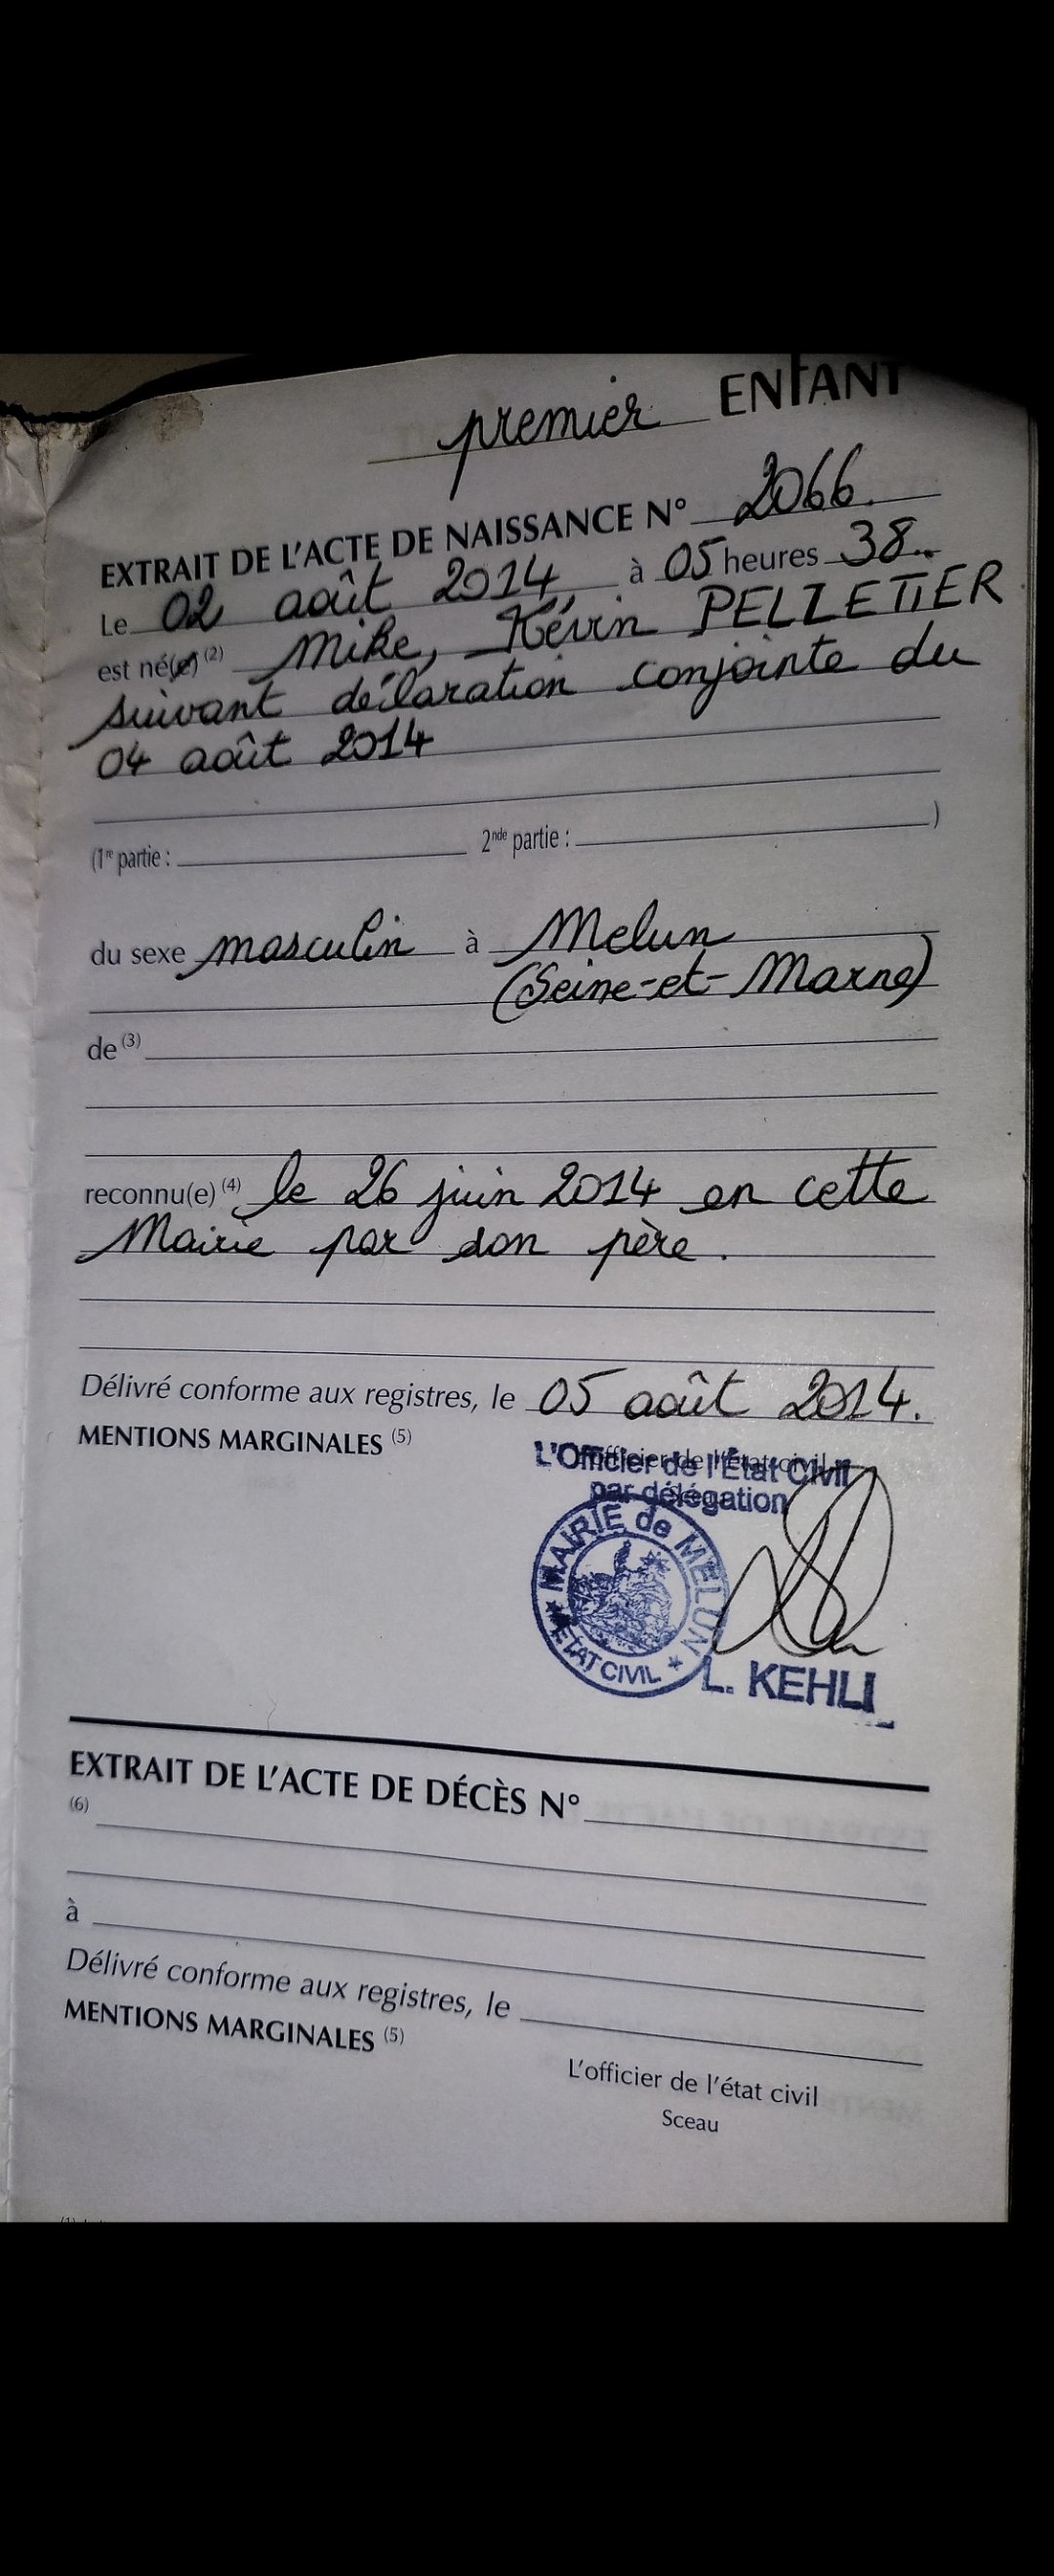 premier ENFANT
EXTRAIT DE L'ACTE DE NAISSANCE N° 2066.
Le 02 août 2014 à 05 heures 38
est né(e) (2) Mike, Kévin PELLETIER
suivant déclaration conjointe du
04 août 2014
(1re partie : 2nde partie : )
du sexe masculin à Melun
(Seine-et-Marne)
de (3)
reconnu(e) (4) le 26 juin 2014 en cette
Mairie par son père.
Délivré conforme aux registres, le 05 août 2014.
MENTIONS MARGINALES (5)
L'Officier de l'État Civil
par délégation
MAIRIE de MELUN
★ ÉTAT CIVIL ★
L. KEHLI
EXTRAIT DE L'ACTE DE DÉCÈS N°
(6)
à
Délivré conforme aux registres, le
MENTIONS MARGINALES (5)
L'officier de l'état civil
Sceau